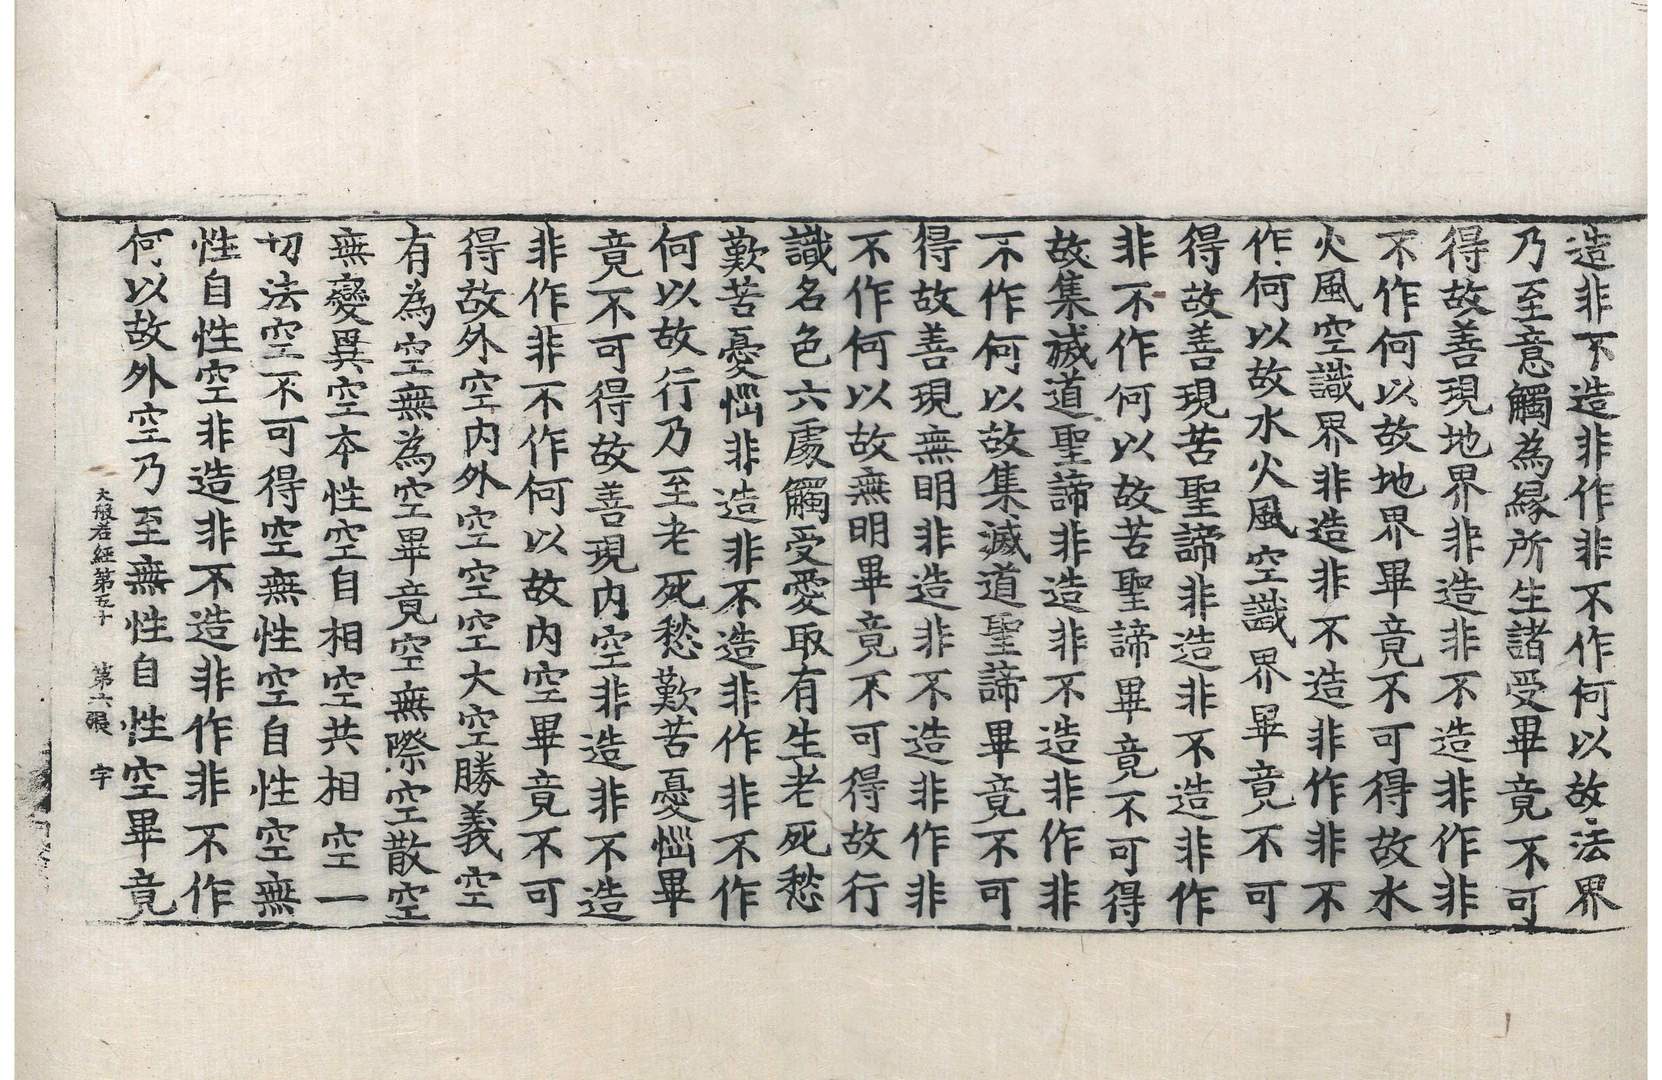 造非不造非作非不作何以故法界
乃至意觸為縁所生諸受畢竟不可
得故善現地界非造非不造非作非
不作何以故地界畢竟不可得故水
火風空識界非造非不造非作非不
作何以故水火風空識界畢竟不可
得故善現苦聖諦非造非不造非作
非不作何以故苦聖諦畢竟不可得
故集滅道聖諦非造非不造非作非
不作何以故集滅道聖諦畢竟不可
得故善現無明非造非不造非作非
不作何以故無明畢竟不可得故行
識名色六處觸受愛取有生老死愁
歎苦憂惱非造非不造非作非不作
何以故行乃至老死愁歎苦憂惱畢
竟不可得故善現内空非造非不造
非作非不作何以故内空畢竟不可
得故外空内外空空空大空勝義空
有為空無為空畢竟空無際空散空
無變異空本性空自相空共相空一
切法空不可得空無性空自性空無
性自性空非造非不造非作非不作
何以故外空乃至無性自性空畢竟
大般若經第五十 第六張 宇